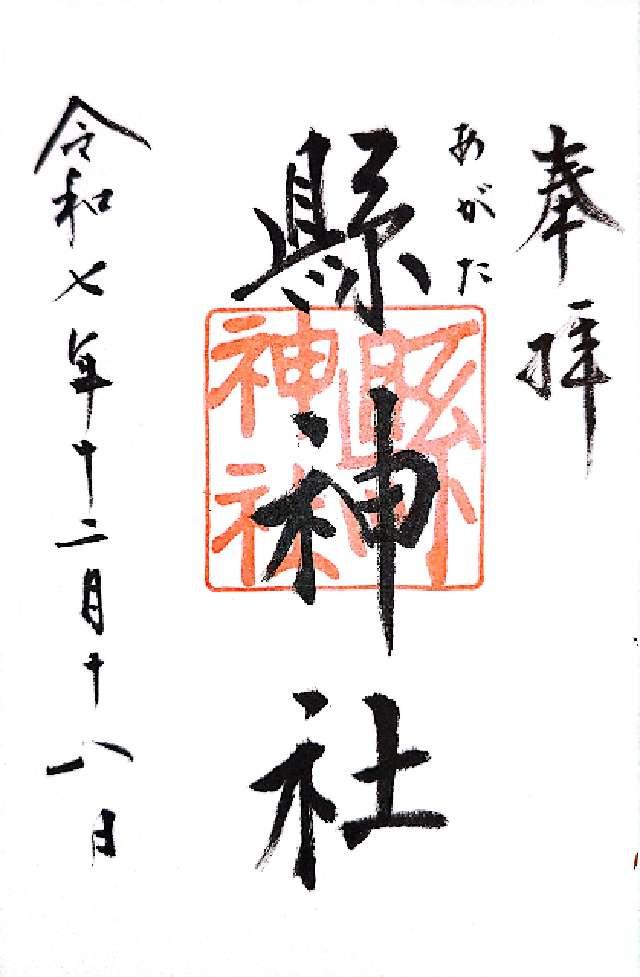 奉拝
あがた
縣神社
縣神社
令和七年十二月十八日